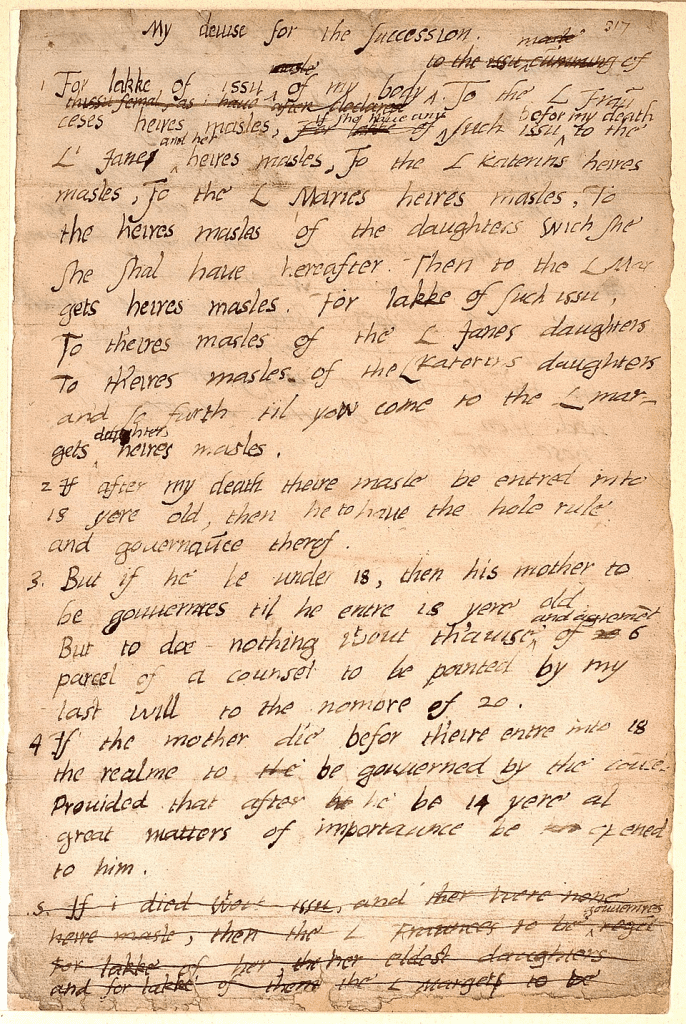 My deuise for the succession. 317
masle
masle to the issu cumming of
1 For lakke of issu of my body. To the L Frau
thissu femal, as i haue after declared if she haue any befor my death
ceses heires masles, For lakke of such issu to the
and her
L' Janes heires masles, To the L Katerins heires
masles, To the L Maries heires masles, To
the heires masles of the daughters wich she
she shal haue hereafter. Then to the L Mar
gets heires masles. For lakke of such issu,
To theires masles of the L Janes daughters
To theires masles of the L Katerins daughters
and so furth til yow come to the L mar-
daughters
gets heires masles.
2 If after my death theire masle be entred into
18 yere old, then he to haue the hole rule
and gouernaūce therof.
3. But if he be under 18, then his mother to
be gouuernres til he entre 18 yere old
and agremēt
But to doe nothing wout thauise of 6
parcel of a counsel to be pointed by my
last will to the nombre of 20.
4 If the mother die befor theire entre into 18
the realme to the be gouuerned by the coūcel
Prouided that after he be 14 yere al
great matters of importaunce be opened
to him.
5. If i died wout issu, and ther were none
gouuernres
heire masle, then the L Fraunces to be reget
For lakke of her, the her eldest daughters
and for lakke of them the L Margets to be